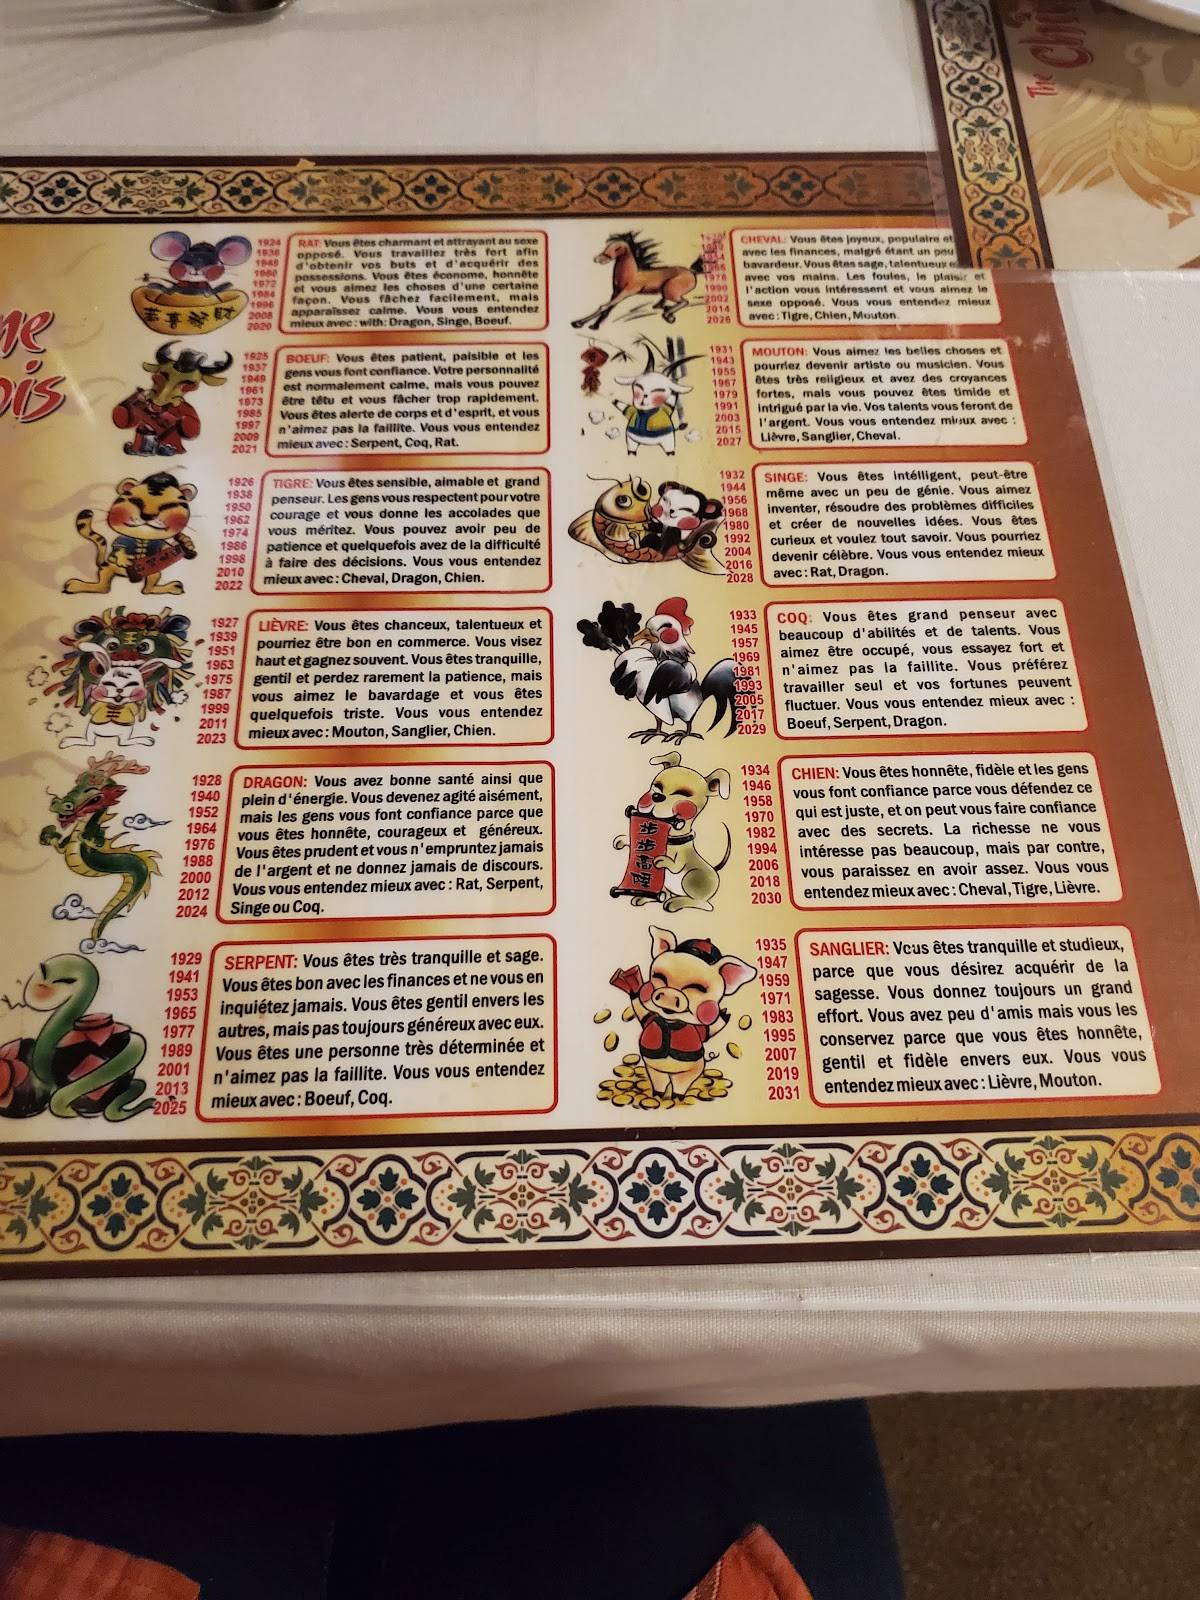 The
1924
1936
1948
1960
1972
1984
1996
2008
2020
RAT: Vous êtes charmant et attrayant au sexe
opposé. Vous travaillez très fort afin
d'obtenir vos buts et d'acquérir des
possessions. Vous êtes économe, honnête
et vous aimez les choses d'une certaine
façon. Vous fâchez facilement, mais
apparaissez calme. Vous vous entendez
mieux avec: with: Dragon, Singe, Boeuf.
1925
1937
1949
1961
1973
1985
1997
2009
2021
BOEUF: Vous êtes patient, paisible et les
gens vous font confiance. Votre personnalité
est normalement calme, mais vous pouvez
être têtu et vous fâcher trop rapidement.
Vous êtes alerte de corps et d'esprit, et vous
n'aimez pas la faillite. Vous vous entendez
mieux avec: Serpent, Coq, Rat.
1926
1938
1950
1962
1974
1986
1998
2010
2022
TIGRE: Vous êtes sensible, aimable et grand
penseur. Les gens vous respectent pour votre
courage et vous donne les accolades que
vous méritez. Vous pouvez avoir peu de
patience et quelquefois avez de la difficulté
à faire des décisions. Vous vous entendez
mieux avec: Cheval, Dragon, Chien.
1927
1939
1951
1963
1975
1987
1999
2011
2023
LIÈVRE: Vous êtes chanceux, talentueux et
pourriez être bon en commerce. Vous visez
haut et gagnez souvent. Vous êtes tranquille,
gentil et perdez rarement la patience, mais
vous aimez le bavardage et vous êtes
quelquefois triste. Vous vous entendez
mieux avec: Mouton, Sanglier, Chien.
1928
1940
1952
1964
1976
1988
2000
2012
2024
DRAGON: Vous avez bonne santé ainsi que
plein d'énergie. Vous devenez agité aisément,
mais les gens vous font confiance parce que
vous êtes honnête, courageux et généreux.
Vous êtes prudent et vous n'empruntez jamais
de l'argent et ne donnez jamais de discours.
Vous vous entendez mieux avec: Rat, Serpent,
Singe ou Coq.
1929
1941
1953
1965
1977
1989
2001
2013
2025
SERPENT: Vous êtes très tranquille et sage.
Vous êtes bon avec les finances et ne vous en
inquiétez jamais. Vous êtes gentil envers les
autres, mais pas toujours généreux avec eux.
Vous êtes une personne très déterminée et
n'aimez pas la faillite. Vous vous entendez
mieux avec: Boeuf, Coq.
1978
1990
2002
2014
2026
CHEVAL: Vous êtes joyeux, populaire et
avec les finances, malgré étant un peu
bavardeur. Vous êtes sage, talentueux et
avec vos mains. Les foules, le plaisir et
l'action vous intéressent et vous aimez le
sexe opposé. Vous vous entendez mieux
avec: Tigre, Chien, Mouton.
1931
1943
1955
1967
1979
1991
2003
2015
2027
MOUTON: Vous aimez les belles choses et
pourriez devenir artiste ou musicien. Vous
êtes très religieux et avez des croyances
fortes, mais vous pouvez être timide et
intrigué par la vie. Vos talents vous feront de
l'argent. Vous vous entendez mieux avec :
Lièvre, Sanglier, Cheval.
1932
1944
1956
1968
1980
1992
2004
2016
2028
SINGE: Vous êtes intélligent, peut-être
même avec un peu de génie. Vous aimez
inventer, résoudre des problèmes difficiles
et créer de nouvelles idées. Vous êtes
curieux et voulez tout savoir. Vous pourriez
devenir célèbre. Vous vous entendez mieux
avec: Rat, Dragon.
1933
1945
1957
1969
1981
1993
2005
2017
2029
COQ: Vous êtes grand penseur avec
beaucoup d'abilités et de talents. Vous
aimez être occupé, vous essayez fort et
n'aimez pas la faillite. Vous préférez
travailler seul et vos fortunes peuvent
fluctuer. Vous vous entendez mieux avec :
Boeuf, Serpent, Dragon.
1934
1946
1958
1970
1982
1994
2006
2018
2030
步步高陞
CHIEN: Vous êtes honnête, fidèle et les gens
vous font confiance parce vous défendez ce
qui est juste, et on peut vous faire confiance
avec des secrets. La richesse ne vous
intéresse pas beaucoup, mais par contre,
vous paraissez en avoir assez. Vous vous
entendez mieux avec: Cheval, Tigre, Lièvre.
1935
1947
1959
1971
1983
1995
2007
2019
2031
SANGLIER: Vous êtes tranquille et studieux,
parce que vous désirez acquérir de la
sagesse. Vous donnez toujours un grand
effort. Vous avez peu d'amis mais vous les
conservez parce que vous êtes honnête,
gentil et fidèle envers eux. Vous vous
entendez mieux avec: Lièvre, Mouton.